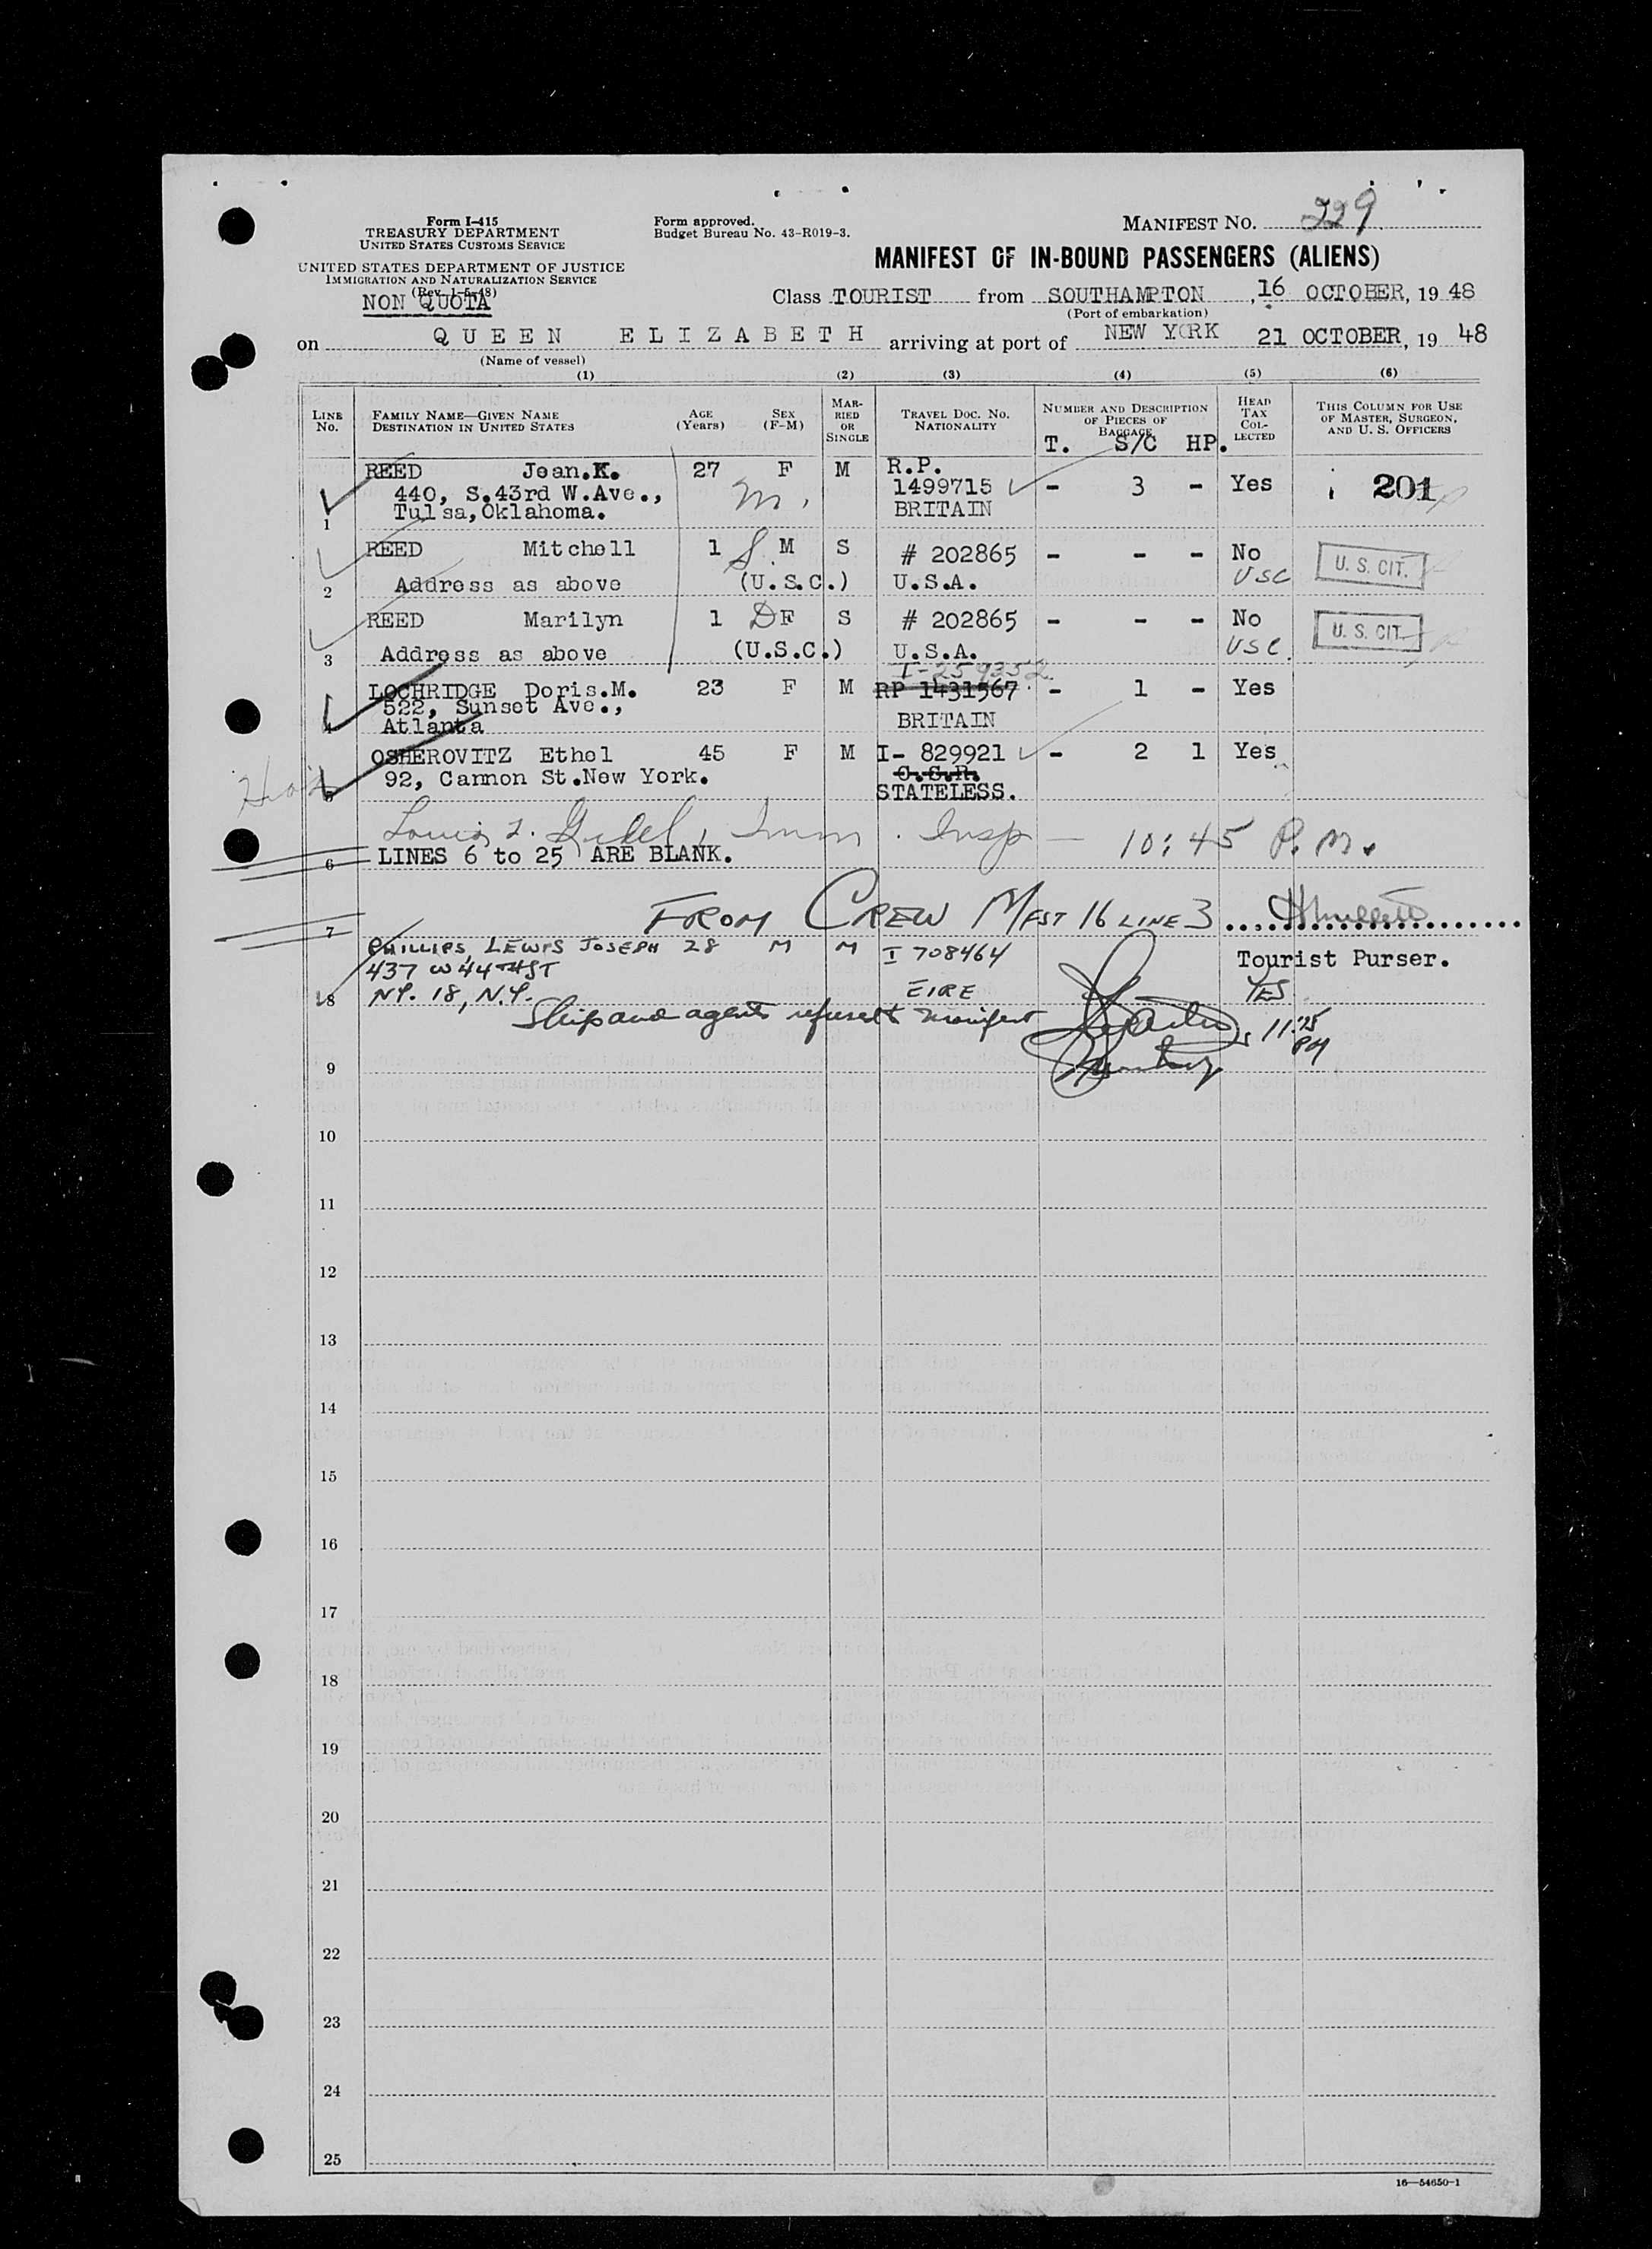 Form I-415
TREASURY DEPARTMENT
UNITED STATES CUSTOMS SERVICE
UNITED STATES DEPARTMENT OF JUSTICE
IMMIGRATION AND NATURALIZATION SERVICE
(Rev. 1-5-48)
NON QUOTA
Form approved.
Budget Bureau No. 43-R019-3.
MANIFEST No. 229
MANIFEST OF IN-BOUND PASSENGERS (ALIENS)
Class TOURIST from SOUTHAMPTON, 16 OCTOBER, 19 48
(Port of embarkation)
on QUEEN ELIZABETH arriving at port of NEW YORK 21 OCTOBER, 19 48
(Name of vessel)
(1) (2) (3) (4) (5) (6)
LINE No.
FAMILY NAME—GIVEN NAME
DESTINATION IN UNITED STATES
AGE (Years)
SEX (F-M)
MARRIED OR SINGLE
TRAVEL DOC. NO.
NATIONALITY
NUMBER AND DESCRIPTION OF PIECES OF BAGGAGE
T. S/C HP.
HEAD TAX COLLECTED
THIS COLUMN FOR USE OF MASTER, SURGEON, AND U. S. OFFICERS
1 REED Jean.K. 27 F M R.P.
440, S.43rd W.Ave., m. 1499715 - 3 - Yes 201
Tulsa,Oklahoma. BRITAIN
2 REED Mitchell 1 S. M S # 202865 - - - No U. S. CIT.
Address as above (U.S.C.) U.S.A. USC
3 REED Marilyn 1 D F S # 202865 - - - No U. S. CIT.
Address as above (U.S.C.) U.S.A. USC.
I-259352
4 LOCHRIDGE Doris.M. 23 F M RP 1431567 - 1 - Yes
522, Sunset Ave.,
Atlanta BRITAIN
5 OSHEROVITZ Ethel 45 F M I- 829921 - 2 1 Yes
92, Cannon St.New York. C.G.R.
STATELESS.
Imm. Insp — 10:45 P.M.
6 LINES 6 to 25 ARE BLANK.
7 FROM CREW MFST 16 LINE 3
PHILLIPS, LEWIS JOSEPH 28 M M I 708464 Tourist Purser.
437 W 44TH ST
8 N.Y. 18, N.Y. EIRE YES
Ship and agents refuse to manifest 11:25 PM
9
10
11
12
13
14
15
16
17
18
19
20
21
22
23
24
25
16—54650-1